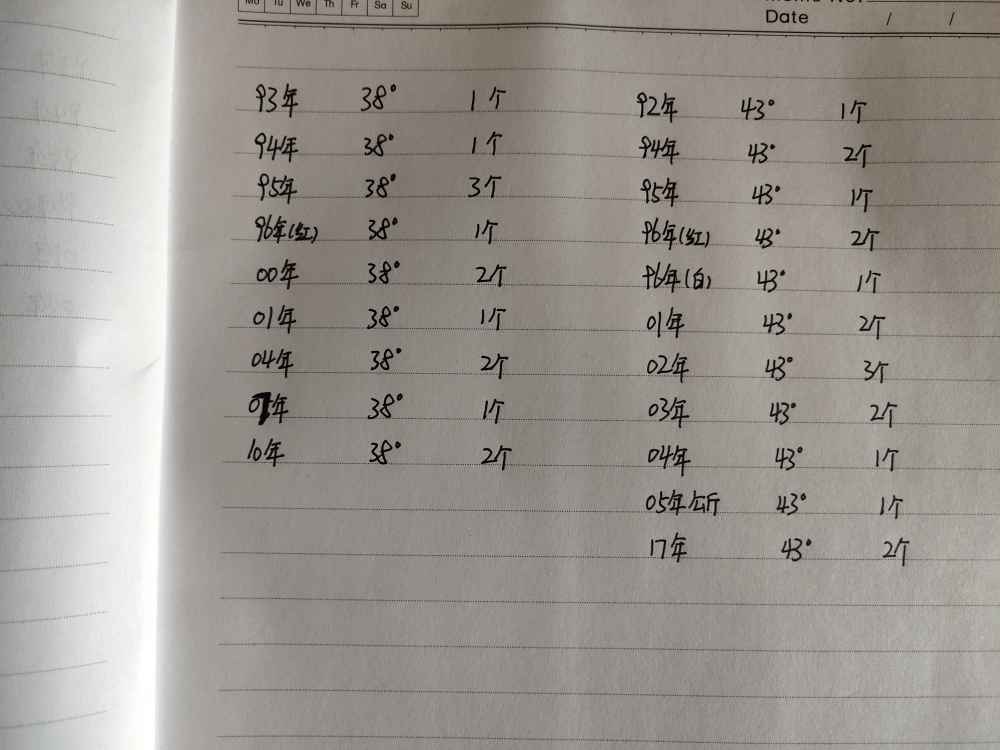 Mo Tu We Th Fr Sa Su
Date / /
93年 38° 1个
94年 38° 1个
95年 38° 3个
96年(红) 38° 1个
00年 38° 2个
01年 38° 1个
04年 38° 2个
07年 38° 1个
10年 38° 2个
92年 43° 1个
94年 43° 2个
95年 43° 1个
96年(红) 43° 2个
96年(白) 43° 1个
01年 43° 2个
02年 43° 3个
03年 43° 2个
04年 43° 1个
05年公斤 43° 1个
17年 43° 2个